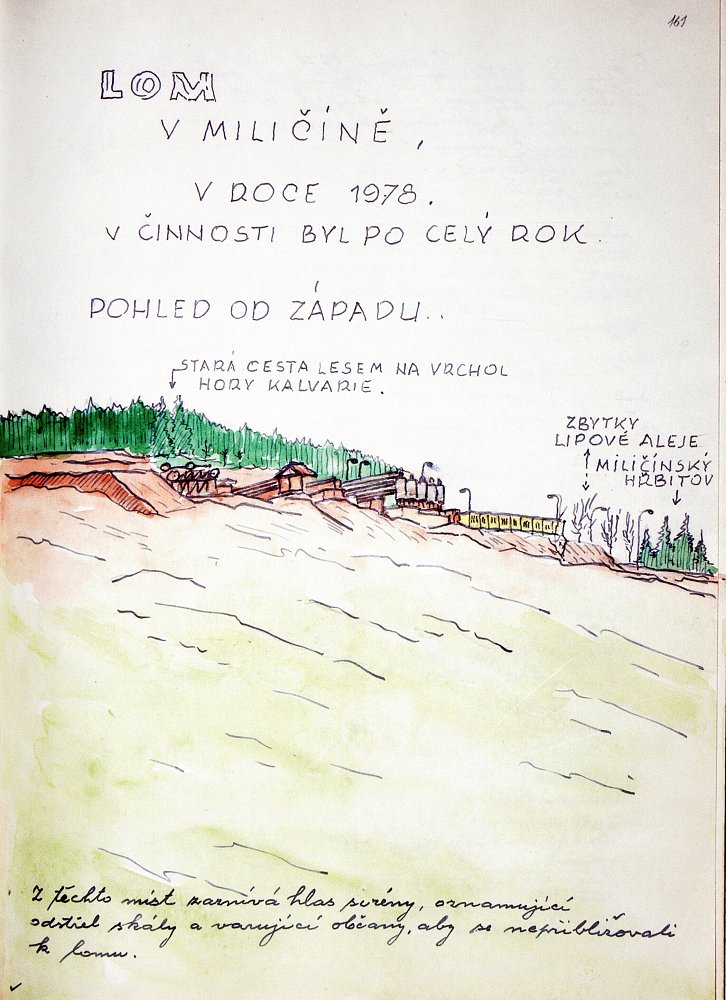 161
LOM
V MILIČÍNĚ,
V ROCE 1978.
V ČINNOSTI BYL PO CELÝ ROK.
POHLED OD ZÁPADU..
STARÁ CESTA LESEM NA VRCHOL
HORY KALVARIE.
ZBYTKY
LIPOVÉ ALEJE
MILIČÍNSKÝ
HŘBITOV
Z těchto míst zaznívá hlas sirény, oznamující
odstřel skály a varující občany, aby se nepřibližovali
k lomu.